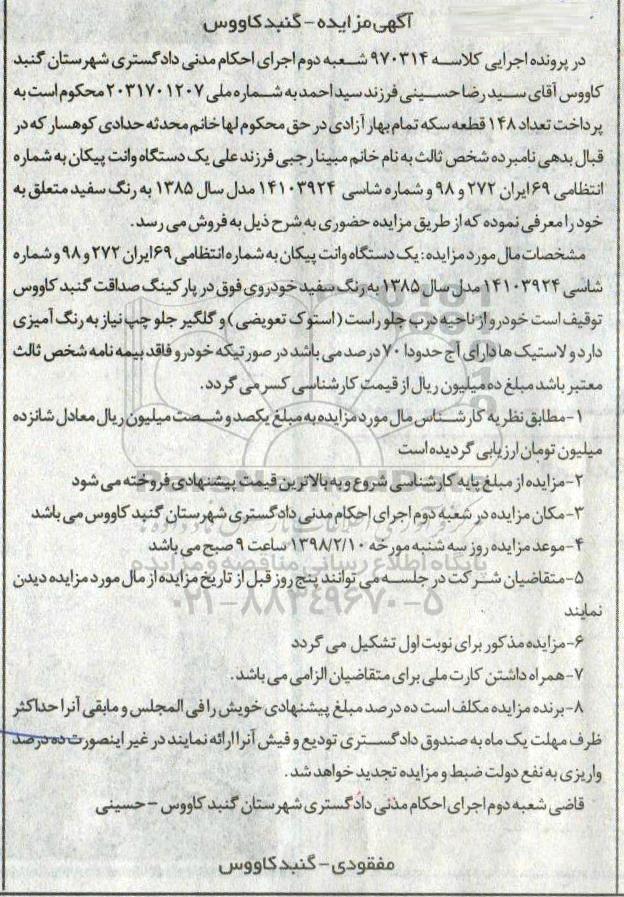 آگهی مزایده - گنبدکاووس
در پرونده اجرایی کلاسه ۹۷۰۳۱۴ شعبه دوم اجرای احکام مدنی دادگستری شهرستان گنبد
کاووس آقای سید رضا حسینی فرزند سید احمد به شماره ملی ۲۰۳۱۷۰۱۲۰۷ محکوم است به
پرداخت تعداد ۱۴۸ قطعه سکه تمام بهار آزادی در حق محکوم لها خانم محدثه حدادی کوهسار که در
قبال بدهی نامبرده شخص ثالث به نام خانم مبینا رجبی فرزند علی یک دستگاه وانت پیکان به شماره
انتظامی ۶۹ ایران ۲۷۲ و ۹۸ و شماره شاسی ۱۴۱۰۳۹۲۴ مدل سال ۱۳۸۵ به رنگ سفید متعلق به
خود را معرفی نموده که از طریق مزایده حضوری به شرح ذیل به فروش می رسد.
مشخصات مال مورد مزایده: یک دستگاه وانت پیکان به شماره انتظامی ۶۹ ایران ۲۷۲ و ۹۸ و شماره
شاسی ۱۴۱۰۳۹۲۴ مدل سال ۱۳۸۵ به رنگ سفید خودروی فوق در پارکینگ صداقت گنبد کاووس
توقیف است خودرو از ناحیه درب جلو راست (استوک تعویضی) و گلگیر جلو چپ نیاز به رنگ آمیزی
دارد و لاستیک ها دارای آج حدودا ۷۰ درصد می باشد در صورتیکه خودرو فاقد بیمه نامه شخص ثالث
معتبر باشد مبلغ ده میلیون ریال از قیمت کارشناسی کسر می گردد.
۱- مطابق نظریه کارشناس مال مورد مزایده به مبلغ یکصد و شصت میلیون ریال معادل شانزده
میلیون تومان ارزیابی گردیده است
۲- مزایده از مبلغ پایه کارشناسی شروع و به بالاترین قیمت پیشنهادی فروخته می شود
۳- مکان مزایده در شعبه دوم اجرای احکام مدنی دادگستری شهرستان گنبد کاووس می باشد
۴- موعد مزایده روز سه شنبه مورخه ۱۳۹۸/۲/۱۰ ساعت ۹ صبح می باشد
پایگاه اطلاع رسانی مناقصه و مزایده
۵- متقاضیان شرکت در جلسه می توانند پنج روز قبل از تاریخ مزایده از مال مورد مزایده دیدن
نمایند
۰۲۱-۸۸۳۴۹۶۷۰-۵
۶- مزایده مذکور برای نوبت اول تشکیل می گردد
۷- همراه داشتن کارت ملی برای متقاضیان الزامی می باشد.
۸- برنده مزایده مکلف است ده درصد مبلغ پیشنهادی خویش را فی المجلس و مابقی آنرا حداکثر
ظرف مهلت یک ماه به صندوق دادگستری تودیع و فیش آنرا ارائه نمایند در غیر اینصورت ده درصد
واریزی به نفع دولت ضبط و مزایده تجدید خواهد شد.
قاضی شعبه دوم اجرای احکام مدنی دادگستری شهرستان گنبد کاووس - حسینی
مفقودی - گنبدکاووس